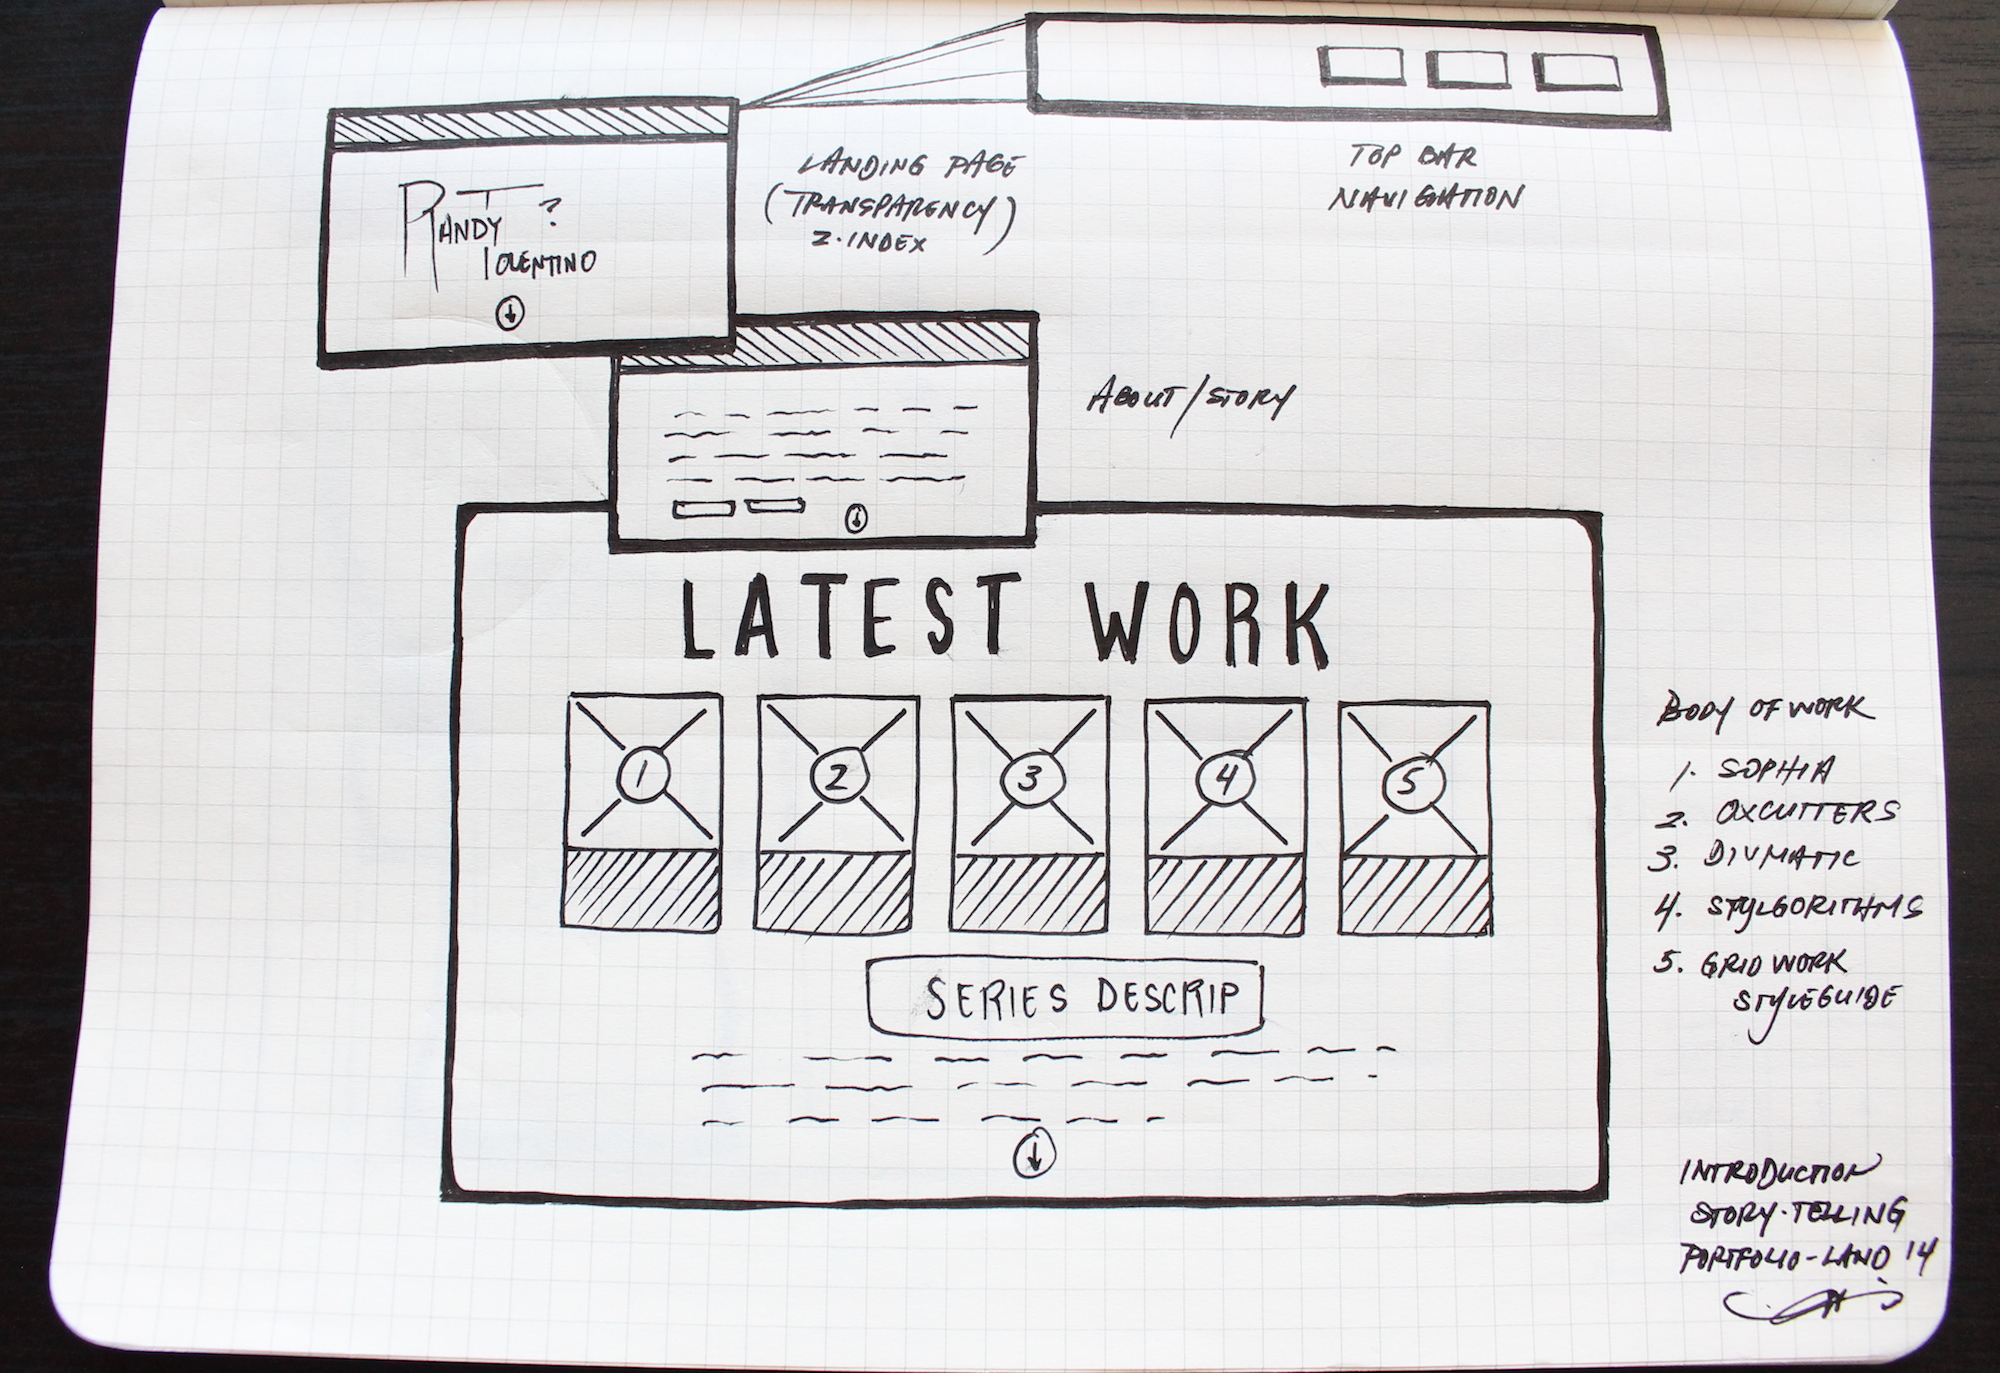 LANDING PAGE
(TRANSPARENCY)
Z-INDEX
TOP BAR
NAVIGATION
RANDY ?
TOLENTINO
ABOUT/STORY
LATEST WORK
1 2 3 4 5
SERIES DESCRIP
BODY OF WORK
1. SOPHIA
2. OXCUTTERS
3. DIVMATIC
4. STYLGORITHMS
5. GRID WORK
STYLEGUIDE
INTRODUCTION
STORY-TELLING
PORTFOLIO-LAND 14